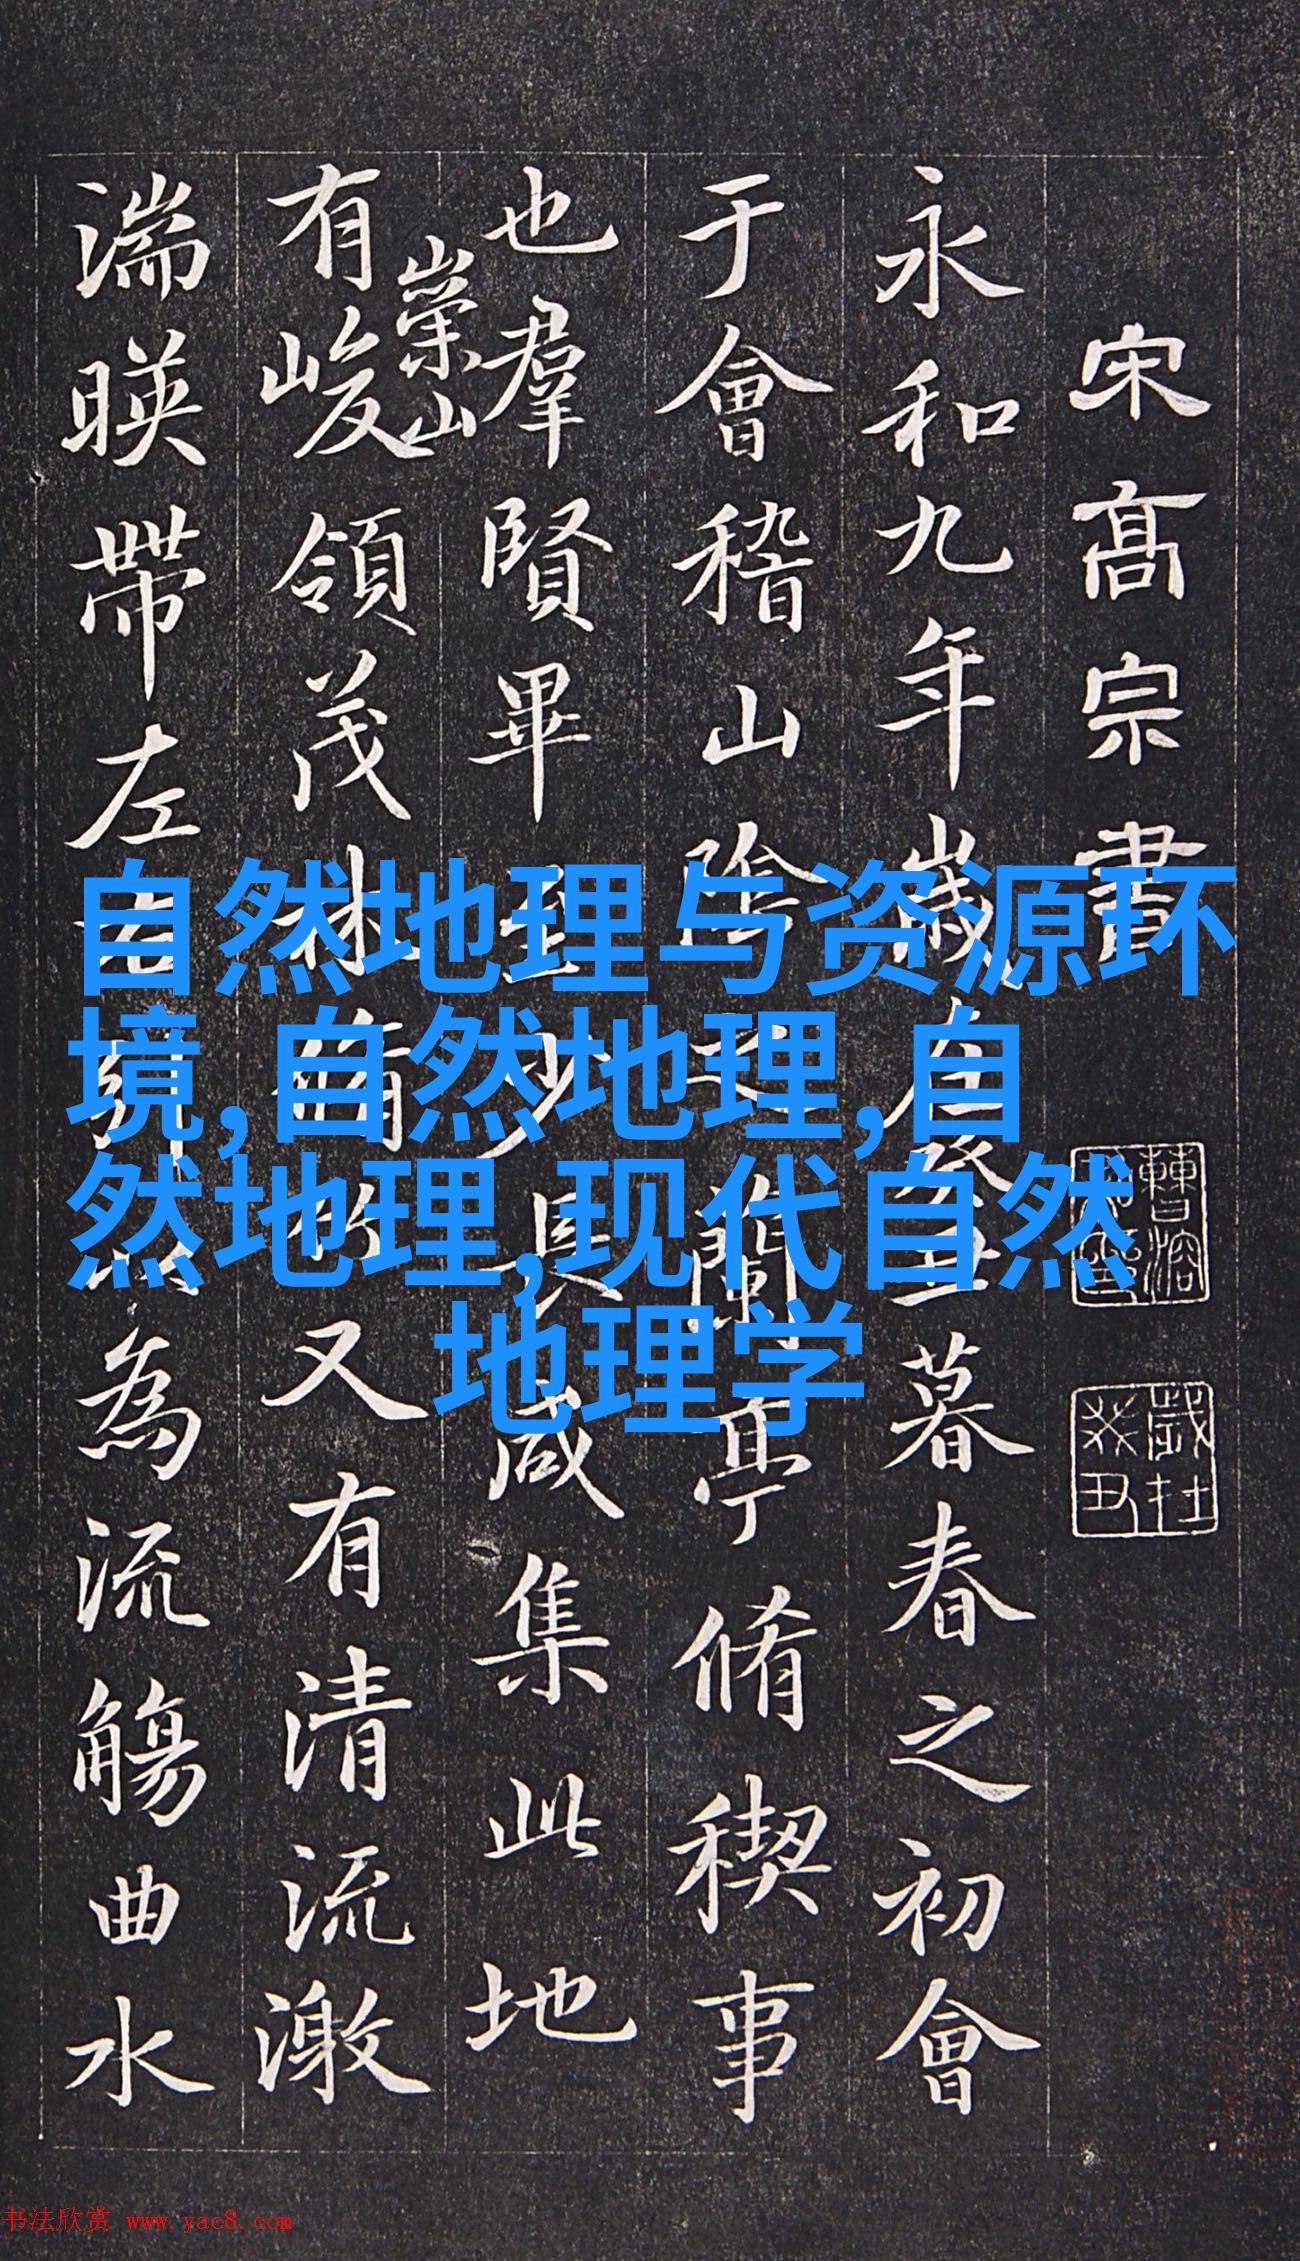 宋高宗書
永和九年歲在癸丑暮春之初會
于會稽山陰之蘭亭脩稧事
也羣賢畢至少長咸集此地
有峻領茂林脩竹又有清流激
崇山
湍暎帶左右引以為流觴曲水
自然地理与资源环
境,自然地理,自
然地理,现代自然
地理学
书法欣赏 www.yac8.com